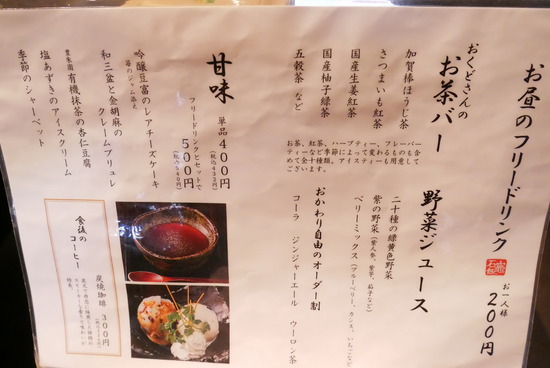 お昼のフリードリンク
お一人様
200円
おくどさんの
お茶バー
加賀棒ほうじ茶
さつまいも紅茶
国産生姜紅茶
国産柚子緑茶
五穀茶 など
お茶、紅茶、ハーブティー、フレーバー
ございます。
野菜ジュース
二十種の緑黄色野菜
紫の野菜(紫人参、紫芋、茄子など)
ベリーミックス(ブルーベリー、カシス、いちごなど)
おかわり自由のオーダー制
コーラ ジンジャーエール ウーロン茶
甘味
単品400円
(税込432円)
フリードリンクとセットで
500円
(税込540円)
吟醸豆富のレアチーズケーキ
苺のジャム添え
和三盆と金胡麻の
クレームブリュレ
有機抹茶の杏仁豆腐
塩あずきのアイスクリーム
季節のシャーベット
食後の
コーヒー
炭焼珈琲 300円